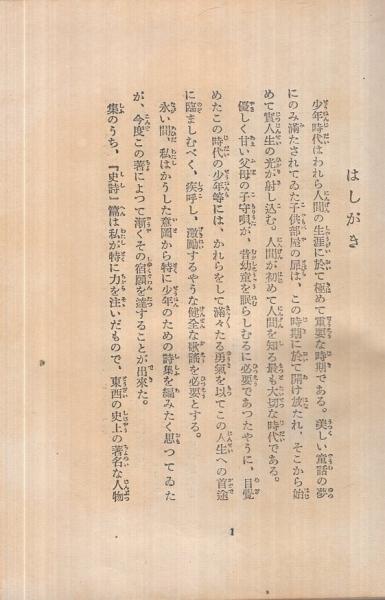 はしがき
少年時代はわれら人間の生涯に於て極めて重要な時期である。美しい童話の夢
にのみ滿たされてゐた子供部屋の扉は、この時期に於て開け放たれ、そこから始
めて實人生の光が射し込む。人間が初めて人間を知る最も大切な時代である。
優しく甘い父母の子守唄が、昔幼童を眠らしむるに必要であつたやうに、目覺
めたこの時代の少年等には、かれらをして滿々たる勇氣を以てこの人生への首途
に臨ましむべく、疾呼し、激勵するやうな健全な歌謠を必要とする。
永い間、私はかうした意圖から特に少年のための詩集を編みたく思つてゐた
が、今度この著によつて漸くその宿願を達することが出來た。
集のうち、『史詩』篇は私が特に力を注いだもので、東西の史上の著名な人物
1